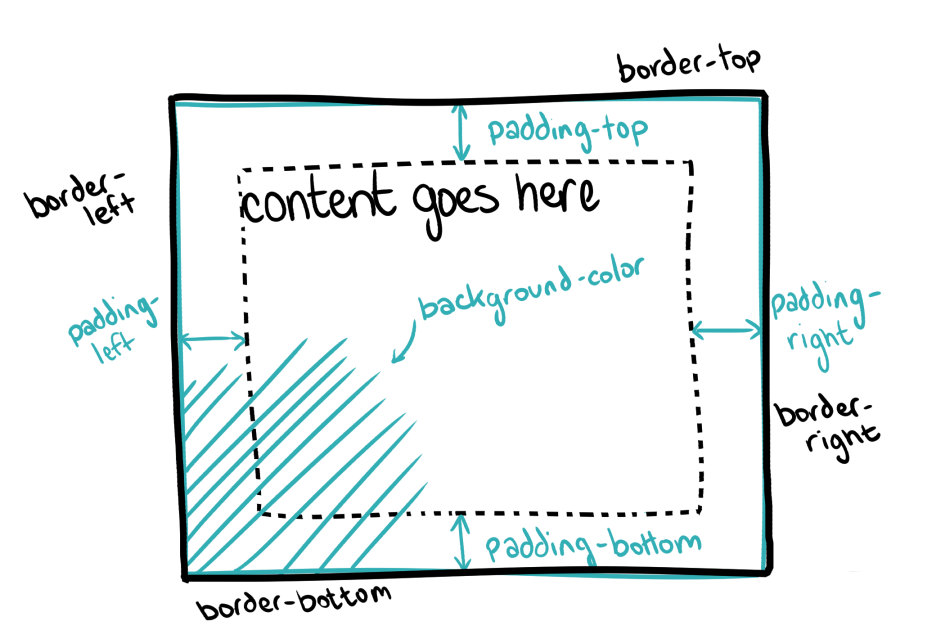 border-top
padding-top
border-
left
content goes here
background-color
padding-
left
padding-
right
border-
right
padding-bottom
border-bottom